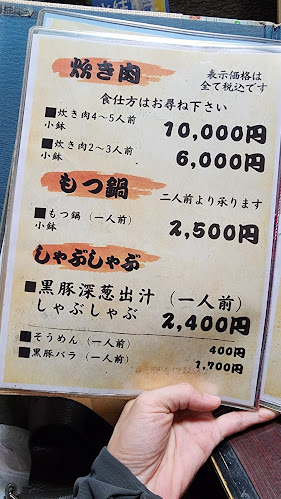 炊き肉
表示価格は
全て税込です
食仕方はお尋ね下さい
■炊き肉4~5人前
小鉢
10,000円
■炊き肉2~3人前
小鉢
6,000円
もつ鍋
二人前より承ります
■もつ鍋（一人前）
小鉢
2,500円
しゃぶしゃぶ
■黒豚深葱出汁（一人前）
しゃぶしゃぶ
2,400円
■そうめん（一人前）
400円
■黒豚バラ（一人前）
1,700円